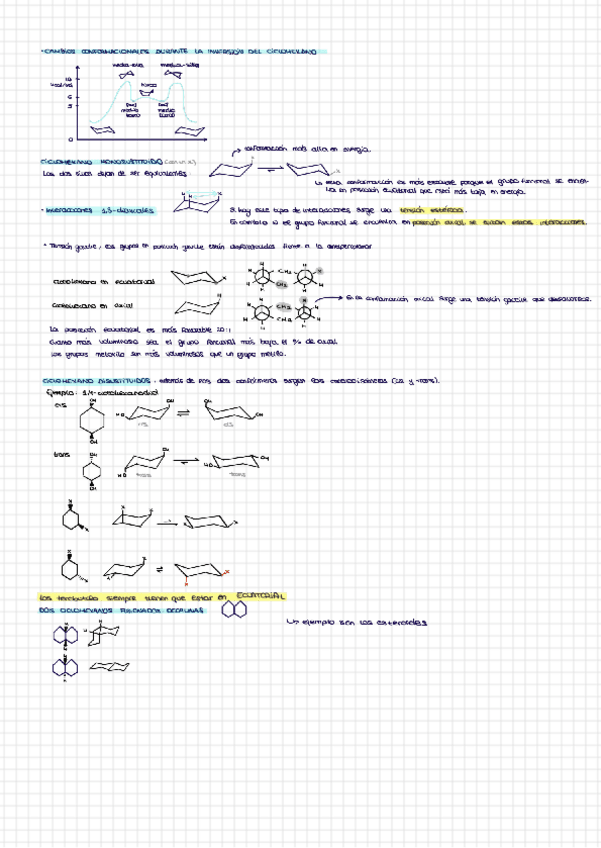 ·CAMBIOS CONFORMACIONALES DURANTE LA INVERSIÓN DEL CICLOHEXANO
media-silla media-silla
Kcal/mol 10 torco
6
5 medio torco medio torco
0
conformación más alta en energía.
CICLOHEXANO MONOSUSTITUIDO (con un X)
Las dos sillas dejan de ser equivalentes
La otra conformación es más estable porque el grupo funcional se encuentra en posición ecuatorial que está más baja en energía.
· Interacciones 1,3-diaxiales
Si hay este tipo de interacciones surge una tensión estérica.
En cambio si el grupo funcional se encuentra en posición axial se evitan estas interacciones.
· Tensión gauche, los grupos en posición gauche están desfavorecidos frente a la antiperiplanar
Ciclohexano en ecuatorial
Ciclohexano en axial
En la conformación axial surge una tensión gauche que desfavorece.
La posición ecuatorial es más favorable 20:1
Cuanto más voluminoso sea el grupo funcional más baja el % de axial.
Los grupos metoxilo son más voluminosos que un grupo metilo.
CICLOHEXANO DISUSTITUIDOS - además de los dos confórmeros surgen los estereoisómeros (cis y trans).
Ejemplo: 1,4-ciclohexanodiol
cis OH HO OH OH OH
OH cis cis
trans OH OH HO OH
OH trans trans
Los terc-butilo siempre tienen que estar en ECUATORIAL
DOS CICLOHEXANOS FUSIONADOS DECALINAS
Un ejemplo son los esteroides